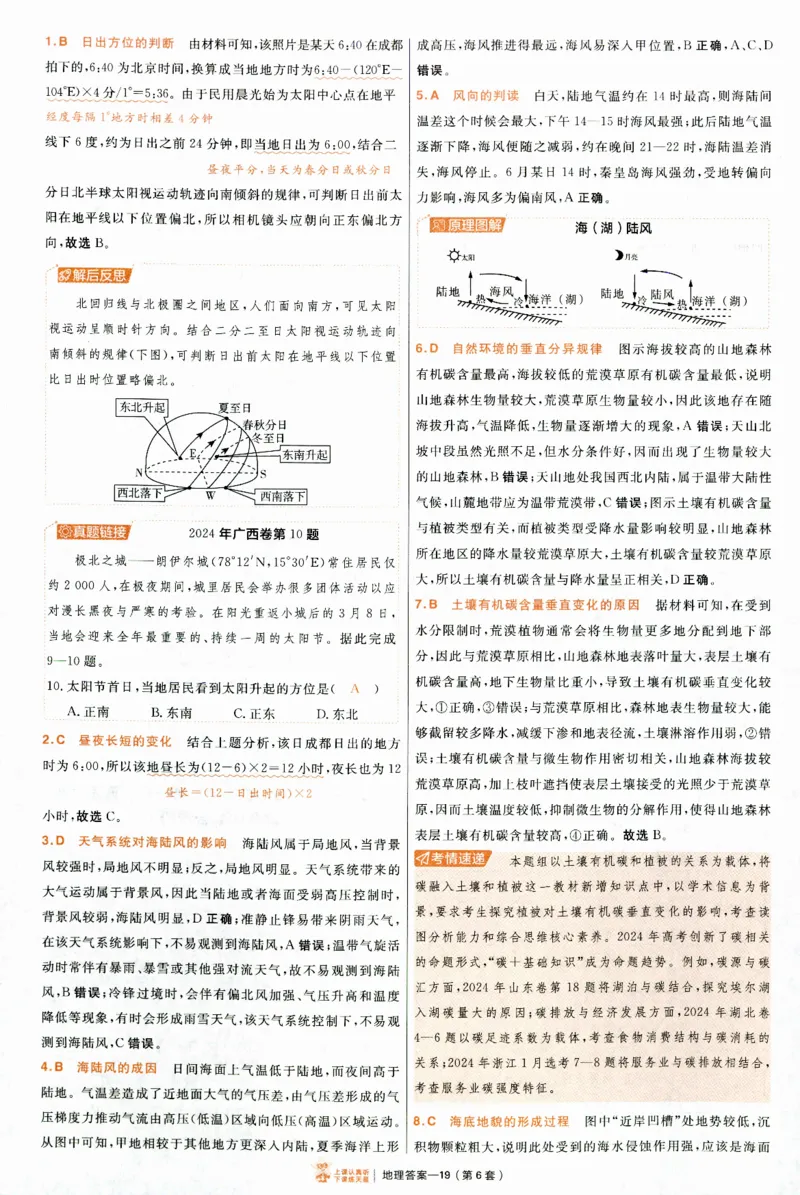 1.B 日出方位的判断 由材料可知,该照片是某天6:40在成都
拍下的,6:40为北京时间,换算成当地地方时为6:40-(120°E-
104°E)×4分/1°=5:36。由于民用晨光始为太阳中心点在地平
经度每隔1°地方时相差4分钟
线下6度,约为日出之前24分钟,即当地日出为6:00,结合二
昼夜平分,当天为春分日或秋分日
分日北半球太阳视运动轨迹向南倾斜的规律,可判断日出前太
阳在地平线以下位置偏北,所以相机镜头应朝向正东偏北方
向,故选B。
解后反思
北回归线与北极圈之间地区,人们面向南方,可见太阳
视运动呈顺时针方向。结合二分二至日太阳视运动轨迹向
南倾斜的规律(下图),可判断日出前太阳在地平线以下位置
比日出时位置略偏北。
东北升起
夏至日
春秋分日
冬至日
E
东南升起
N
S
西北落下
W
西南落下
真题链接
2024年广西卷第10题
极北之城——朗伊尔城(78°12′N,15°30′E)常住居民仅
约2 000人,在极夜期间,城里居民会举办很多团体活动以应
对漫长黑夜与严寒的考验。在阳光重返小城后的3月8日,
当地会迎来全年最重要的、持续一周的太阳节。据此完成
9—10题。
10.太阳节首日,当地居民看到太阳升起的方位是( A )
A.正南 B.东南 C.正东 D.东北
2.C 昼夜长短的变化 结合上题分析,该日成都日出的地方
时为6:00,所以该地昼长为(12-6)×2=12小时,夜长也为12
昼长=(12-日出时间)×2
小时,故选C。
3.D 天气系统对海陆风的影响 海陆风属于局地风,当背景
风较强时,局地风不明显;反之,局地风明显。天气系统带来的
大气运动属于背景风,因此当陆地或者海面受弱高压控制时,
背景风较弱,海陆风明显,D正确;准静止锋易带来阴雨天气,
在该天气系统影响下,不易观测到海陆风,A错误;温带气旋活
动时常伴有暴雨、暴雪或其他强对流天气,故不易观测到海陆
风,B错误;冷锋过境时,会伴有偏北风加强、气压升高和温度
降低等现象,有时会形成雨雪天气,该天气系统控制下,不易观
测到海陆风,C错误。
4.B 海陆风的成因 日间海面上气温低于陆地,而夜间高于
陆地。气温差造成了近地面大气的气压差,由气压差形成的气
压梯度力推动气流由高压(低温)区域向低压(高温)区域运动。
从图中可知,甲地相较于其他地方更深入内陆,夏季海洋上形
成高压,海风推进得最远,海风易深入甲位置,B正确,A、C、D
错误。
5.A 风向的判读 白天,陆地气温约在14时最高,则海陆间
温差这个时候会最大,下午14—15时海风最强;此后陆地气温
逐渐下降,海风便随之减弱,约在晚间21—22时,海陆温差消
失,海风停止。6月某日14时,秦皇岛海风强劲,受地转偏向
力影响,海风多为偏南风,A正确。
原理图解
海(湖)陆风
太阳
陆地 热 海风 冷 海洋(湖)
月亮
陆地 冷 陆风 热 海洋(湖)
6.D 自然环境的垂直分异规律 图示海拔较高的山地森林
有机碳含量最高,海拔较低的荒漠草原有机碳含量最低,说明
山地森林生物量较大,荒漠草原生物量较小,因此该地存在随
海拔升高,气温降低,生物量逐渐增大的现象,A错误;天山北
坡中段虽然光照不足,但水分条件好,因而出现了生物量较大
的山地森林,B错误;天山地处我国西北内陆,属于温带大陆性
气候,山麓地带应为温带荒漠带,C错误;图示土壤有机碳含量
与植被类型有关,而植被类型受降水量影响较明显,山地森林
所在地区的降水量较荒漠草原大,土壤有机碳含量较荒漠草原
大,所以土壤有机碳含量与降水量呈正相关,D正确。
7.B 土壤有机碳含量垂直变化的原因 据材料可知,在受到
水分限制时,荒漠植物通常会将生物量更多地分配到地下部
分,因此与荒漠草原相比,山地森林地表落叶量大,表层土壤有
机碳含量高,地下生物量比重小,导致土壤有机碳垂直变化较
大,①正确,③错误;与荒漠草原相比,森林地表生物量较大,能
够截留较多降水,减缓下渗和地表径流,土壤淋溶作用弱,②错
误;土壤有机碳含量与微生物作用密切相关,山地森林海拔较
荒漠草原高,加上枝叶遮挡使表层土壤接受的光照少于荒漠草
原,因而土壤温度较低,抑制微生物的分解作用,使得山地森林
表层土壤有机碳含量较高,④正确。故选B。
考情速递 本题组以土壤有机碳和植被的关系为载体,将
碳融入土壤和植被这一教材新增知识点中,以学术信息为背
景,要求考生探究植被对土壤有机碳垂直变化的影响,考查读
图分析能力和综合思维核心素养。2024年高考创新了碳相关
的命题形式,“碳+基础知识”成为命题趋势。例如,碳源与碳
汇方面,2024年山东卷第18题将湖泊与碳结合,探究埃尔湖
入湖碳量大的原因;碳排放与经济发展方面,2024年湖北卷
4—6题以碳足迹系数为载体,考查食物消费结构与碳消耗的
关系;2024年浙江1月选考7—8题将服务业与碳排放相结合,
考查服务业碳强度特征。
8.C 海底地貌的形成过程 图中“近岸凹槽”处地势较低,沉
积物颗粒粗大,说明此处受到的海水侵蚀作用强,应该是海面
上课认真听
下课练天星
地理答案—19(第6套)